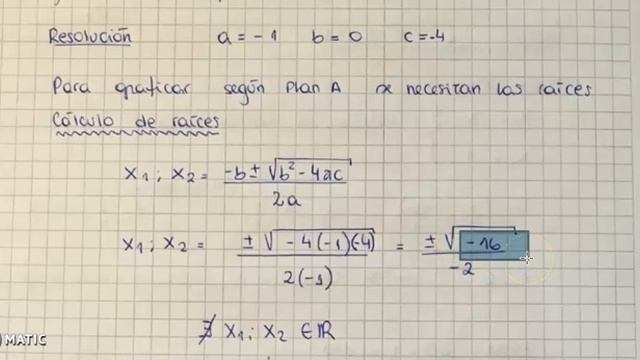 Resolución a = -1 b = 0 c = -4
Para graficar según Plan A se necesitan las raíces
Cálculo de raíces
x₁ ; x₂ = -b ± √b² - 4ac / 2a
x₁ ; x₂ = ± √ - 4 (-1)(-4) / 2(-1) = ± √ -16 / -2
∄ x₁ ; x₂ ∈ ℝ
MATIC